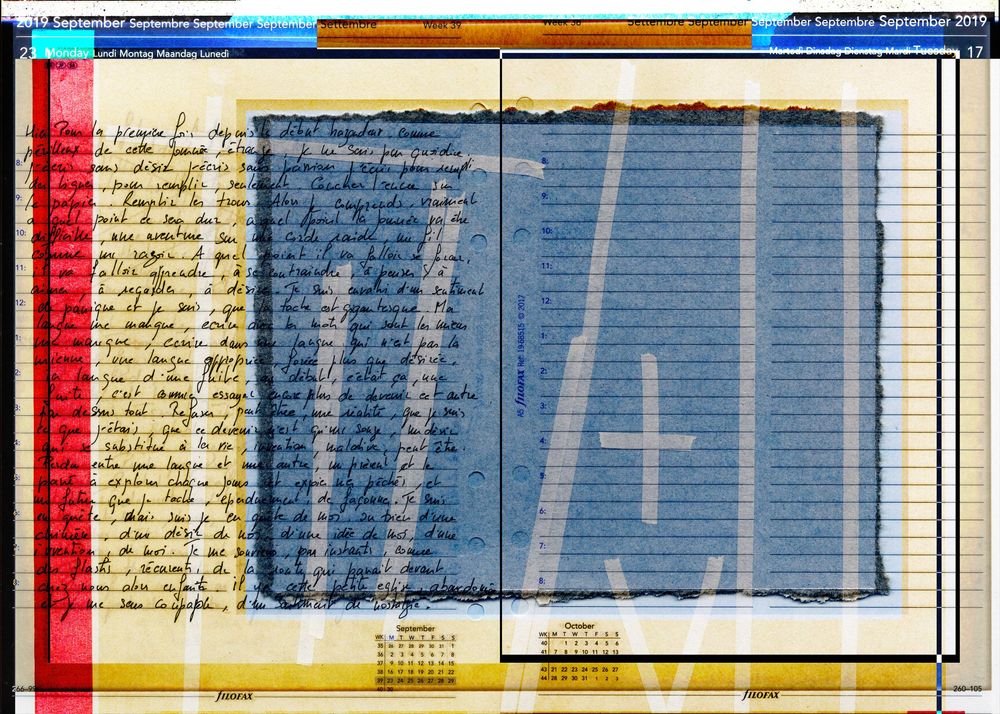 2019 September Septembre September September Settembre
Week 39
Week 38
Settembre September September Septembre September 2019
23 Monday Lundi Montag Maandag Lunedì
Martedì Dinsdag Dienstag Mardi Tuesday 17
Pour la première fois depuis le début hasardeux comme
périlleux de cette journée, étrange, je ne sais pas quoi dire
j'écris sans désir j'écris sans passion j'écris pour rempli
des lignes, pour remplir, seulement. Coucher l'encre sur
le papier. Remplir les trous. Alors je comprends, vraiment
à quel point ce sera dur, à quel point la pensée va être
difficile, une aventure sur une corde raide, un fil
comme un rasoir. A quel point il va falloir se forcer,
il va falloir apprendre, à se contraindre, à penser, à
aimer, à regarder, à désirer. Je suis envahi d'un sentiment
de panique et je sais, que la tache est gigantesque. Ma
langue me manque, écrire avec les mots qui sont les miens
me manque, écrire dans une langue qui n'est pas la
mienne, une langue appropriée, forcée plus que désirée,
la langue d'une fuite, au début, c'était ça, une
fuite, c'est comme essayer encore plus de devenir cet autre
par dessus tout. Refuser, peut être, une réalité, que je suis
ce que j'étais, que ce devenir n'est qu'un songe, un désir
qui se substitue à la vie, invention, maladive, peut être.
Perdu entre une langue et une autre, un présent et le
passé à explorer chaque jours et expier mes péchés, et
un futur que je tache, éperduement, de façonner. Je suis
en quête, mais suis je en quête de moi, ou bien d'une
chimère, d'un désir de moi, d'une idée de moi, d'une
invention, de moi. Je me souviens, par instants, comme
des flashs, récurents, de la route qui passait devant
chez nous alors enfants. il cette petite église, abandonnée
et je me sens coupable, d'un sentiment de nostalgie.
8:
9:
10:
11:
12:
1:
2:
3:
4:
5:
6:
7:
8:
A5 FILOFAX Ref: 19-68515 © 2017
September
WK M T W T F S S
35 26 27 28 29 30 31 1
36 2 3 4 5 6 7 8
37 9 10 11 12 13 14 15
38 16 17 18 19 20 21 22
39 23 24 25 26 27 28 29
40 30
October
WK M T W T F S S
40 1 2 3 4 5 6
41 7 8 9 10 11 12 13
43 21 22 23 24 25 26 27
44 28 29 30 31 1 2 3
266-99
FILOFAX
FILOFAX
260-105